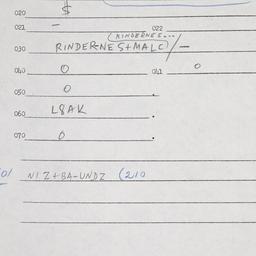 020 $
021 – 022
030 RINDERNES+MALC)/–
040 0 041 0
050 0
060 L8AK
070 0
NIZ+BA-UNDZ (210